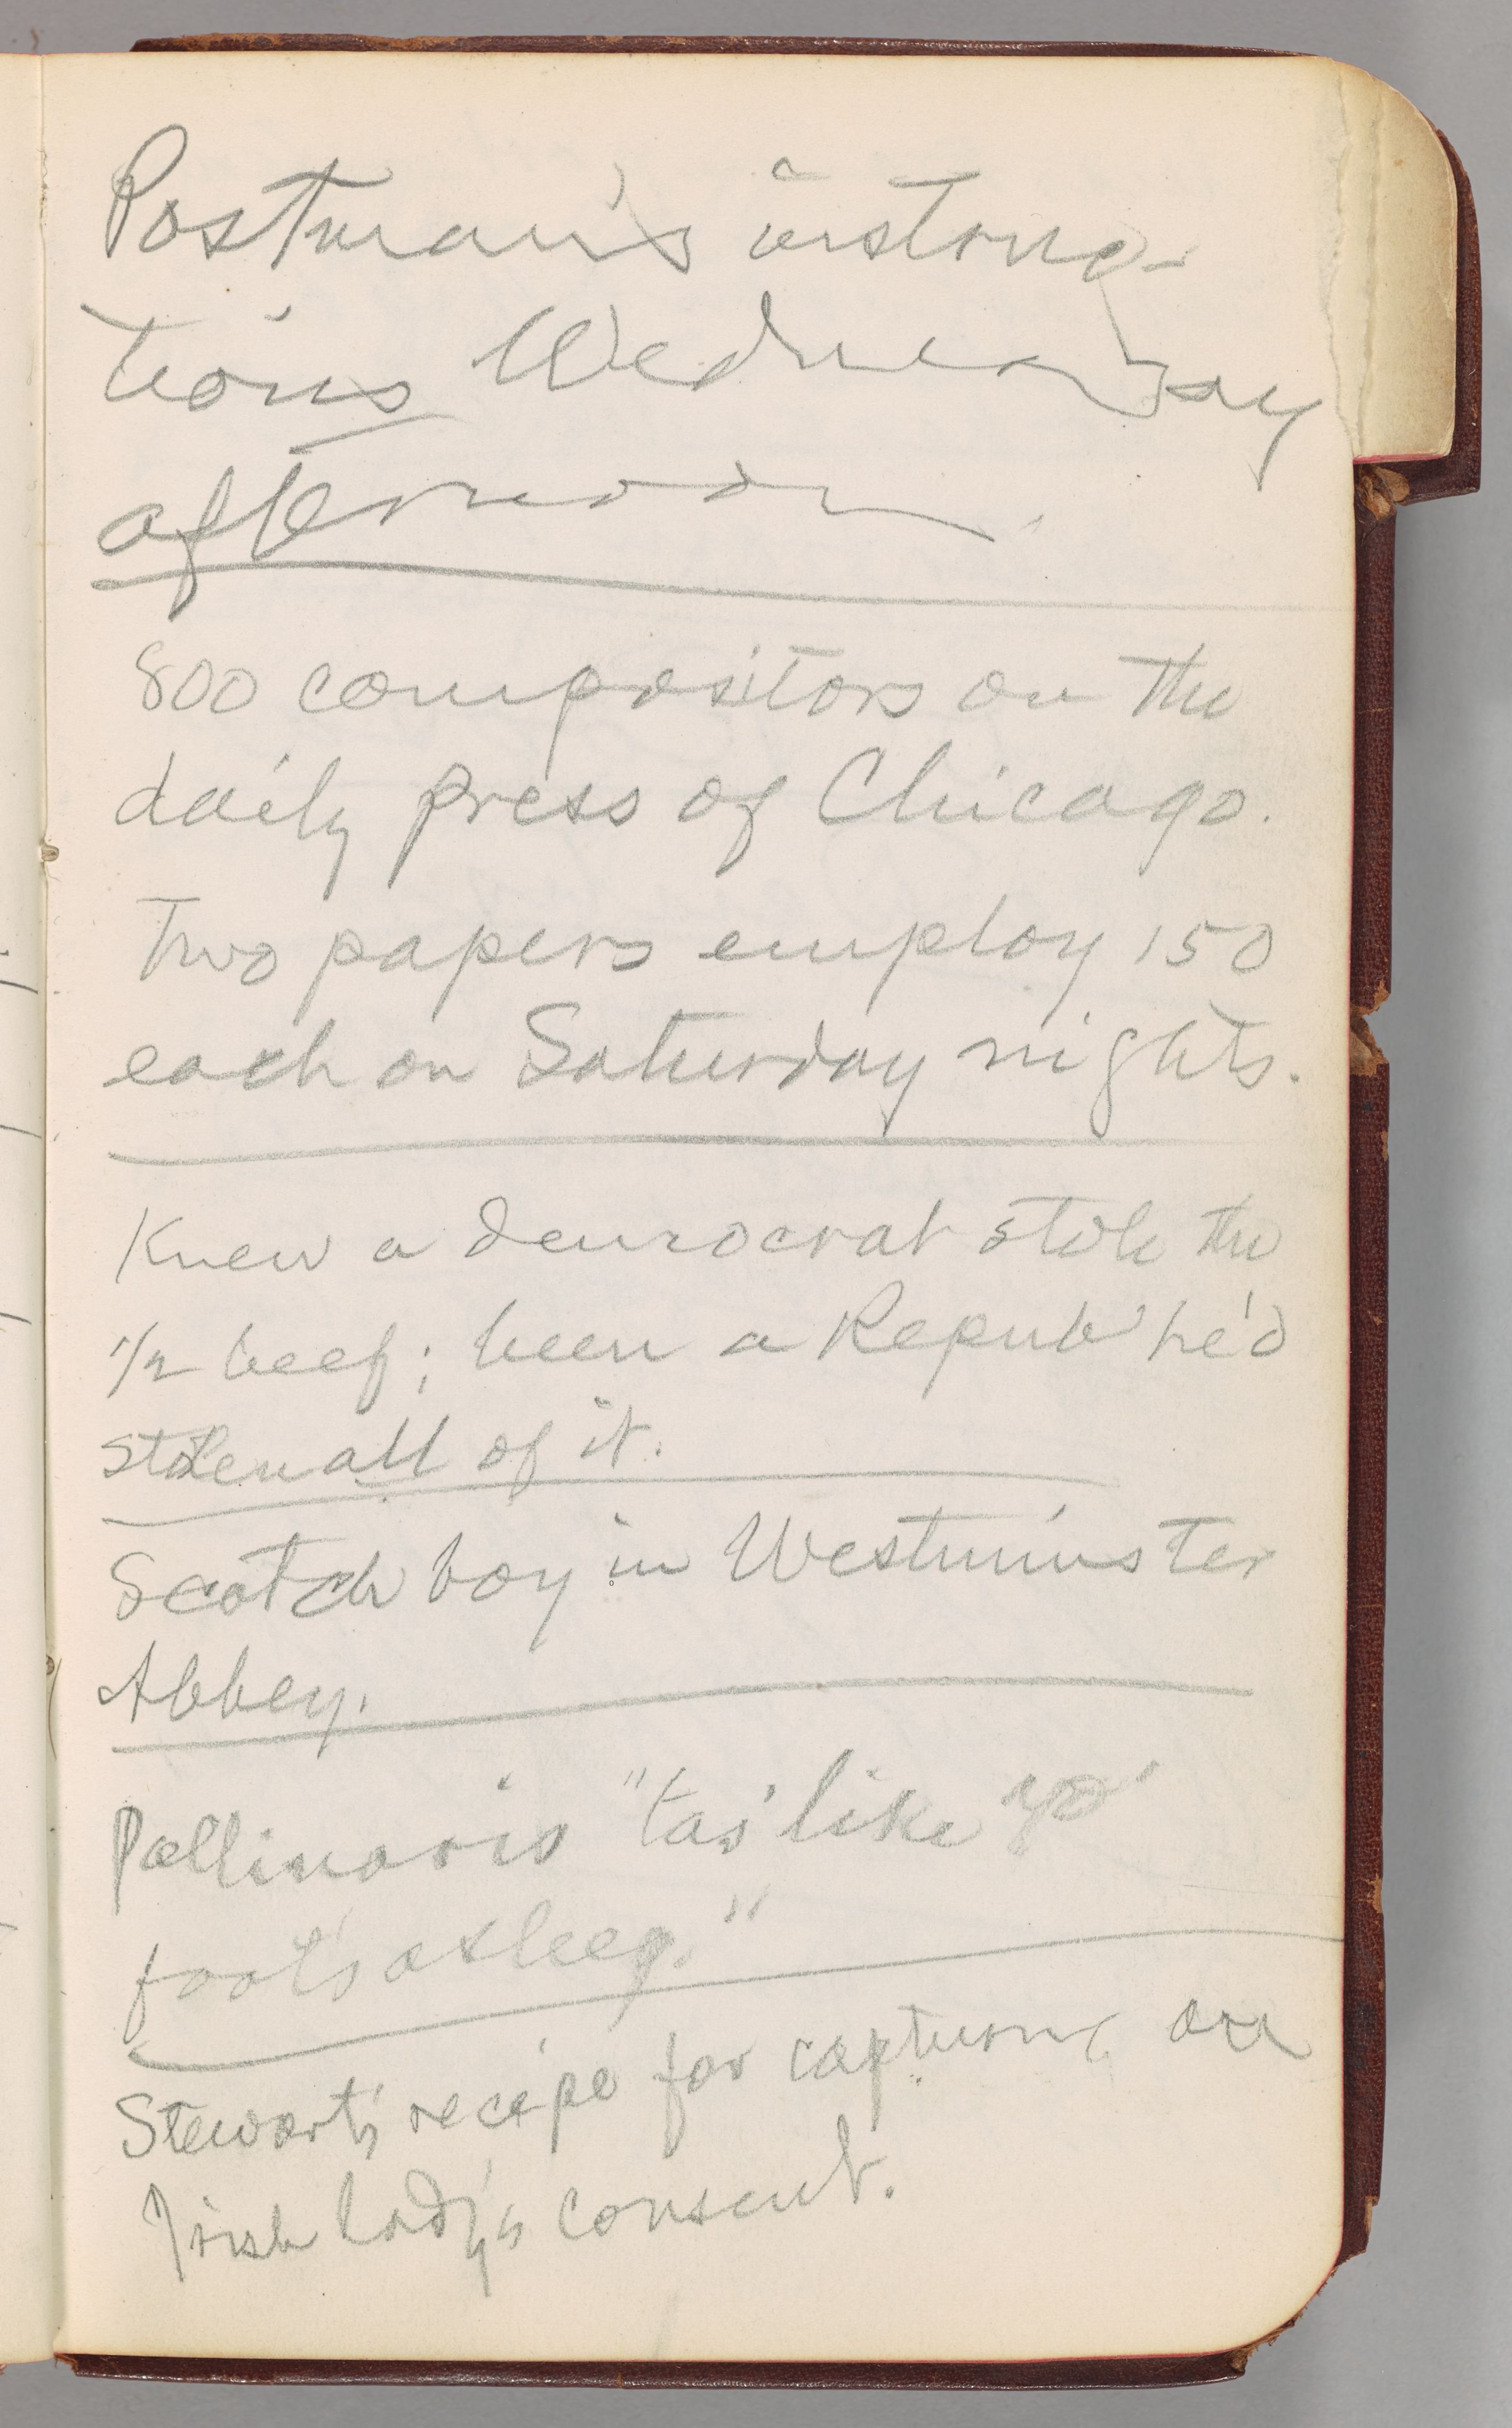 Postman's instruc-
tions Wednesday
afternoon.
800 compositors on the
daily press of Chicago.
Two papers employ 150
each on Saturday nights.
Knew a democrat stole the
1/2 beef; been a Repub' he'd
stolen all of it.
Scotch boy in Westminster
Abbey.
Pollinaris "tas' like yo'
foot's asleep."
Stewart's recipe for capturing an
Irish lady's consent.